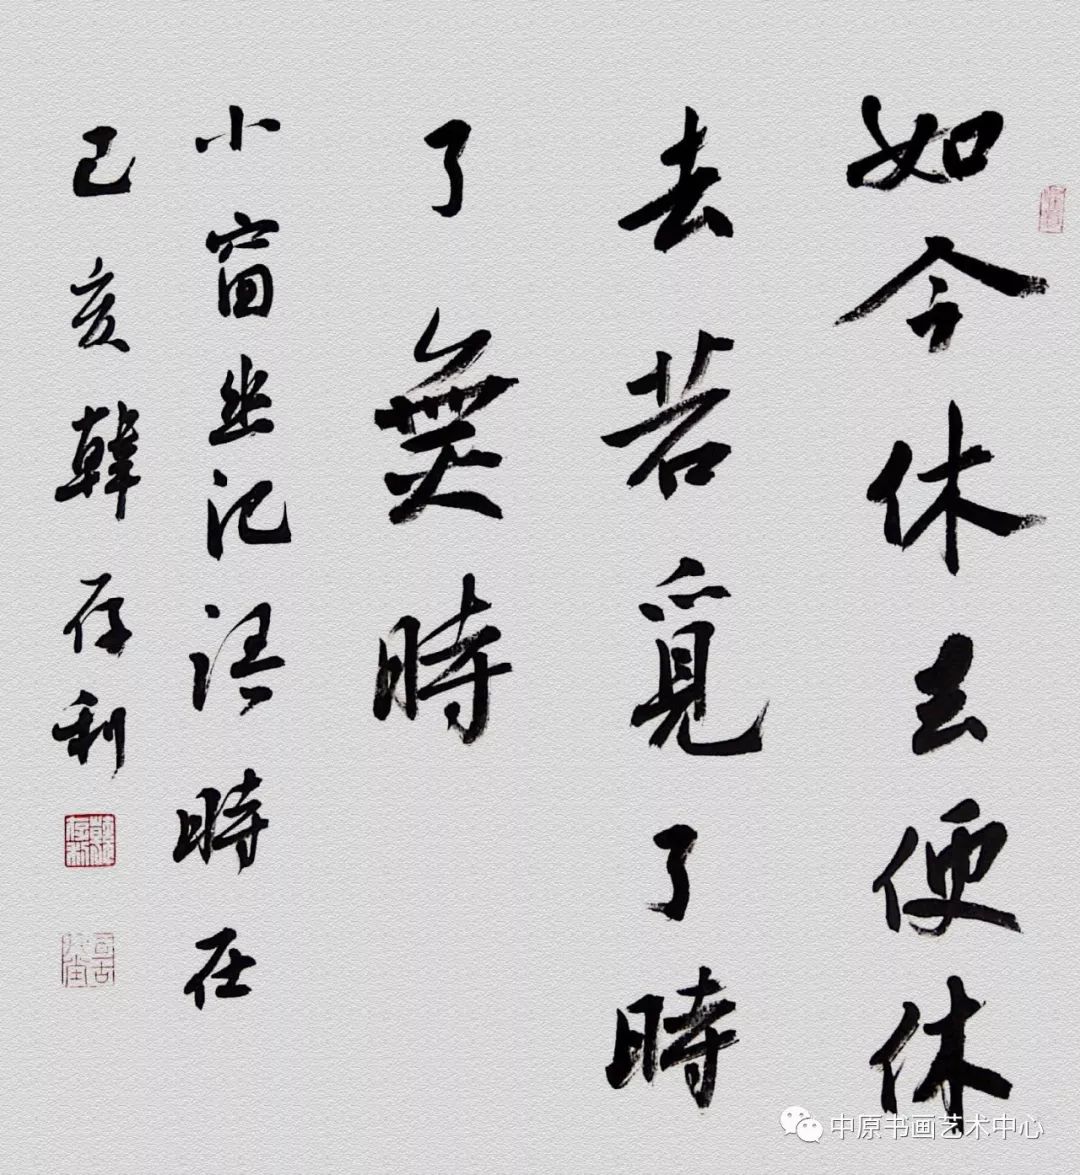 如今休去便休
去若覓了時
了無時
小窗幽記語時在
己亥韓存利
韓存利
中原书画艺术中心